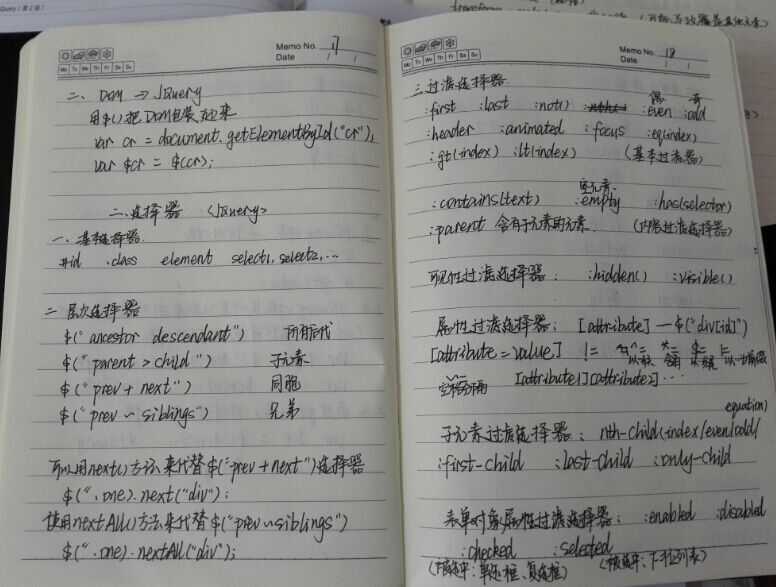 jQuery (第2版)
Memo No. 17
Mo Tu We Th Fr Sa Su
Date / /
二、DOM → JQuery
用$()把DOM包装起来
var cr = document.getElementById("cr");
var $cr = $(cr);
二、选择器 <JQuery>
一、基本选择器
#id .class element select1, select2, ...
二 层次选择器
$("ancestor descendant") 所有后代
$("parent > child") 子元素
$("prev + next") 同胞
$("prev ~ siblings") 兄弟
可以用next()方法来代替$("prev + next")选择器
$(".one).next("div");
使用nextAll()方法来代替$("prev ~ siblings")
$(".one).nextAll("div");
Memo No. 18
Mo Tu We Th Fr Sa Su
Date / /
三.过滤选择器
偶 奇
:first :last :not() :even :odd
:header :animated :focus :eq(index)
:gt(index) :lt(index) (基本过滤器)
空元素
:contains(text) :empty :has(selector)
:parent 含有子元素的元素 (内容过滤选择器)
可见性过滤选择器: :hidden() :visible()
属性过滤选择器: [attribute] — $("div[id]")
[attribute = value] != ^= *= $= |=
含有
空格分隔 [attribute1][attribute2]...
equation)
子元素过滤选择器: nth-child(index/even/odd/
:first-child :last-child :only-child
表单对象属性过滤选择器: :enabled :disabled
:checked :selected
(被选中:单选框、复选框) (被选中、下拉列表)